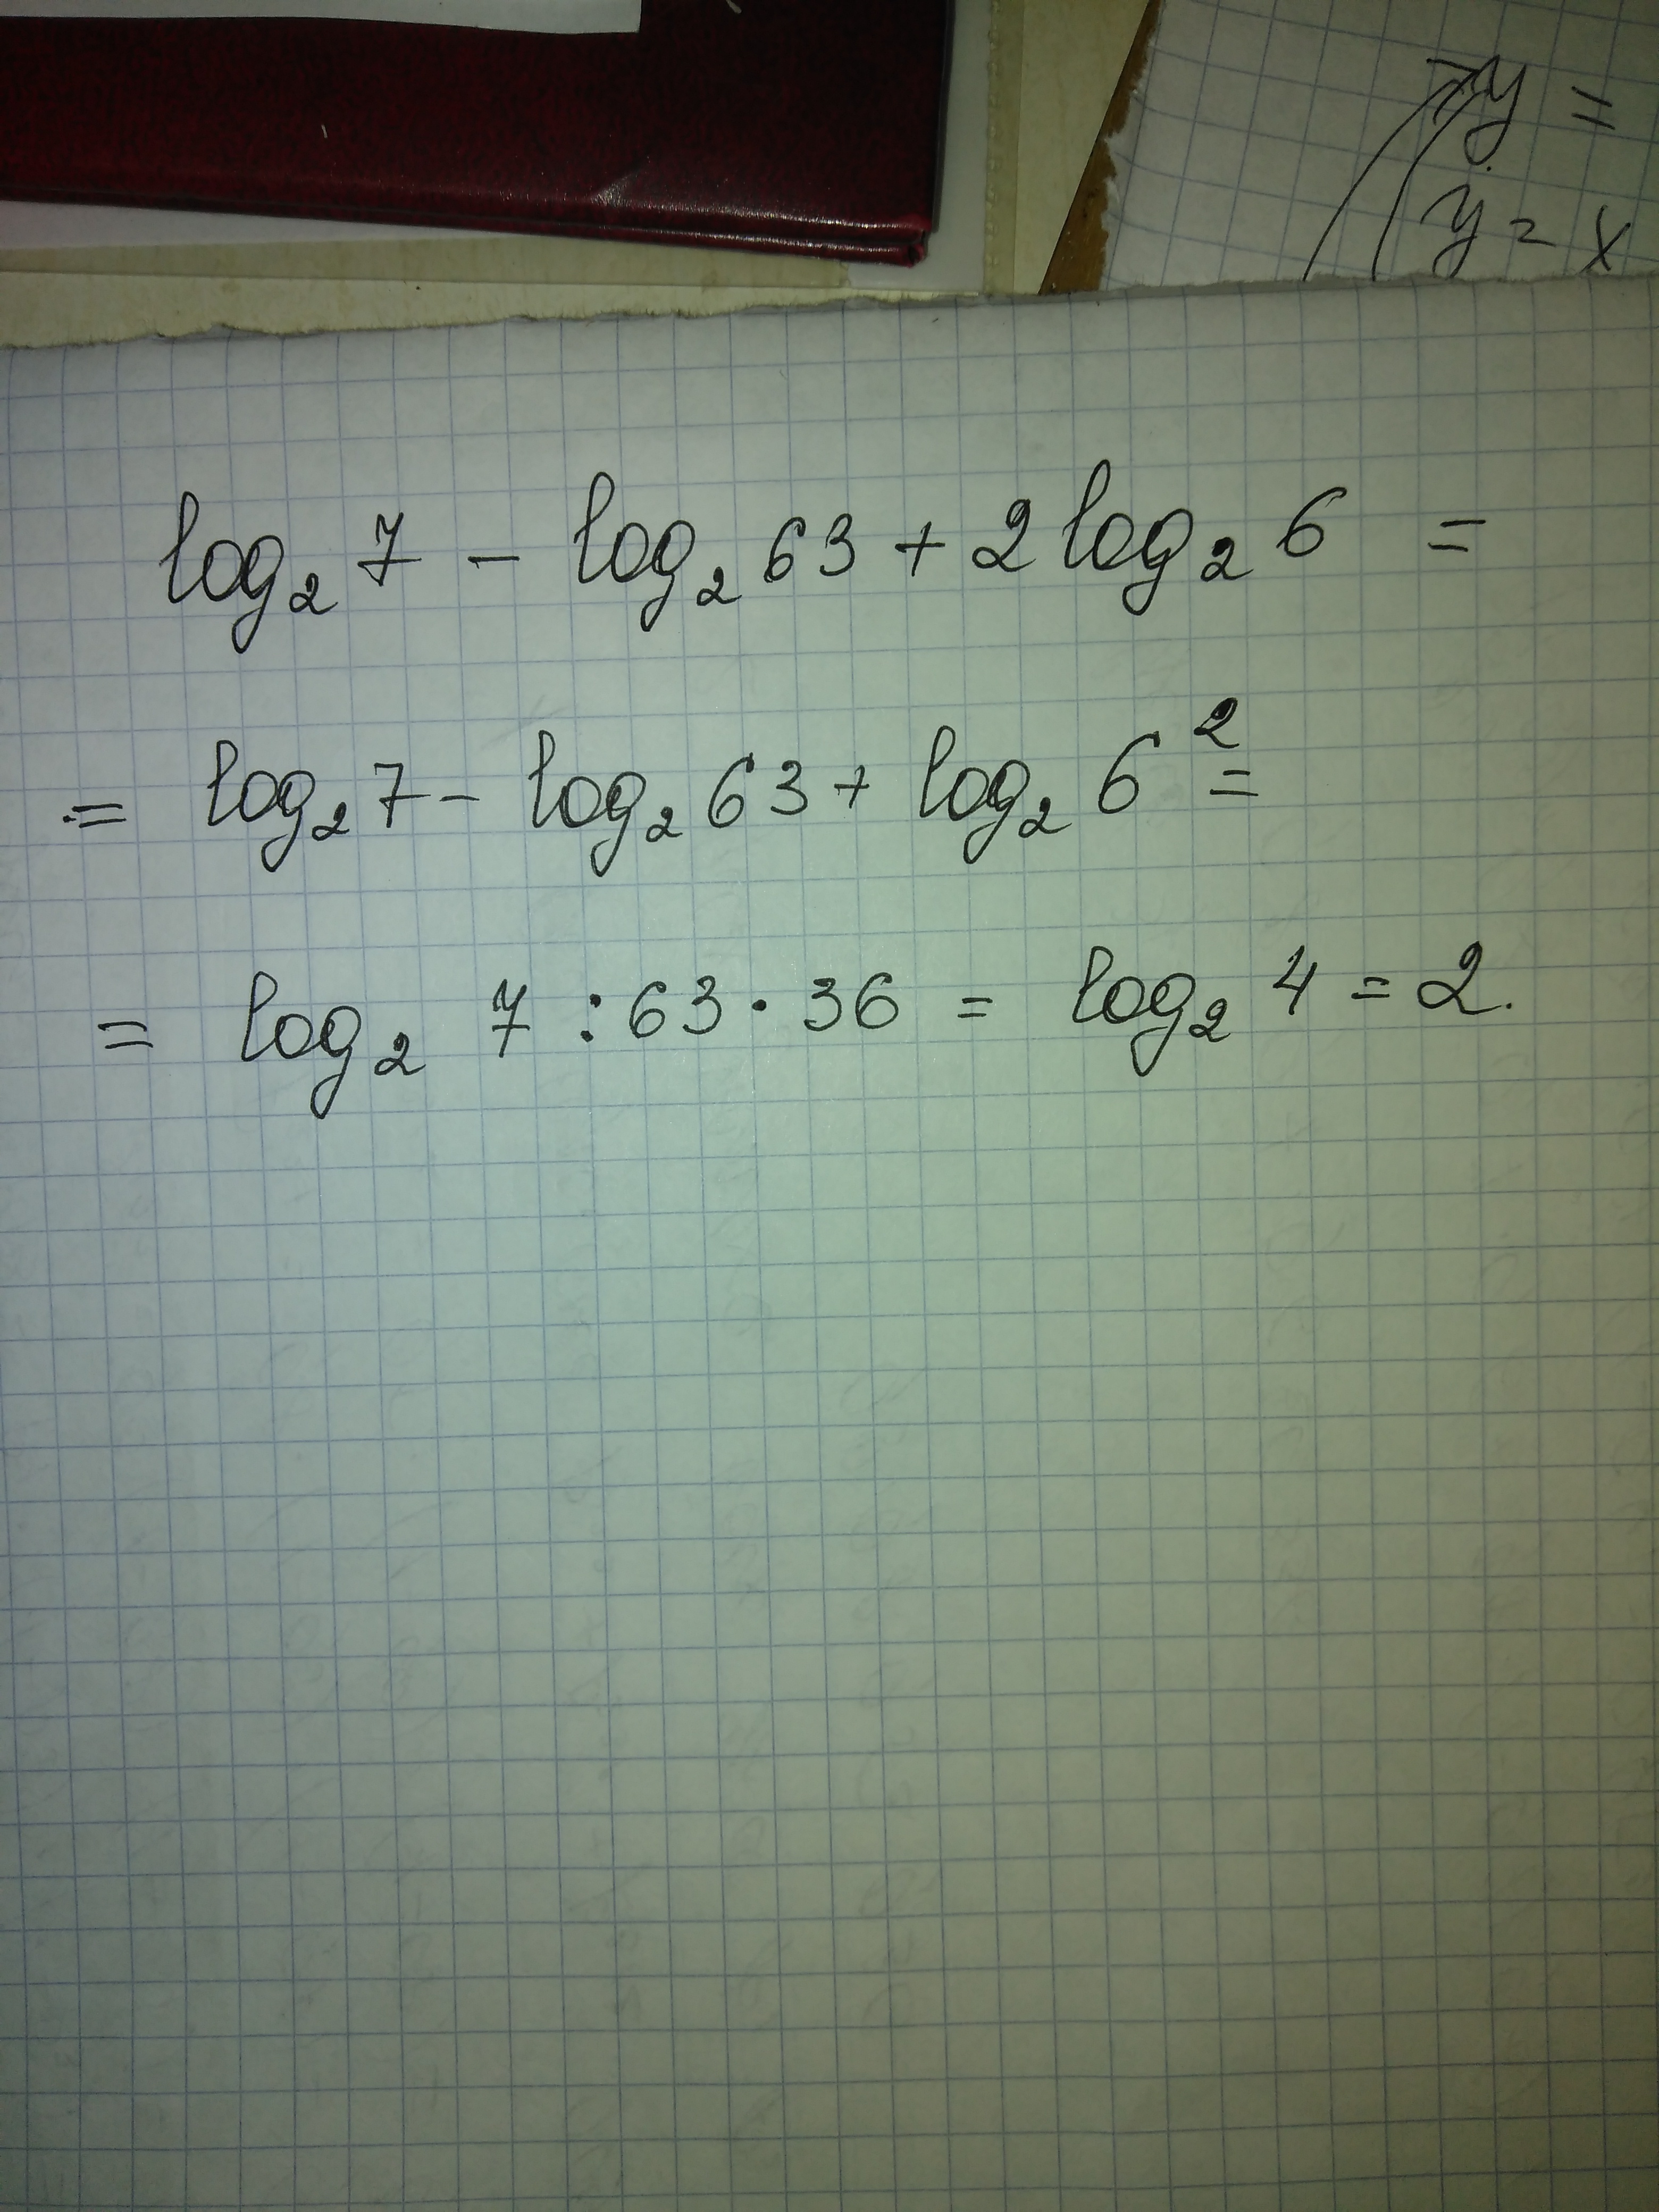 y =
y = x
log₂ 7 - log₂ 63 + 2 log₂ 6 =
= log₂ 7 - log₂ 63 + log₂ 6² =
= log₂ 7 : 63 · 36 = log₂ 4 = 2.